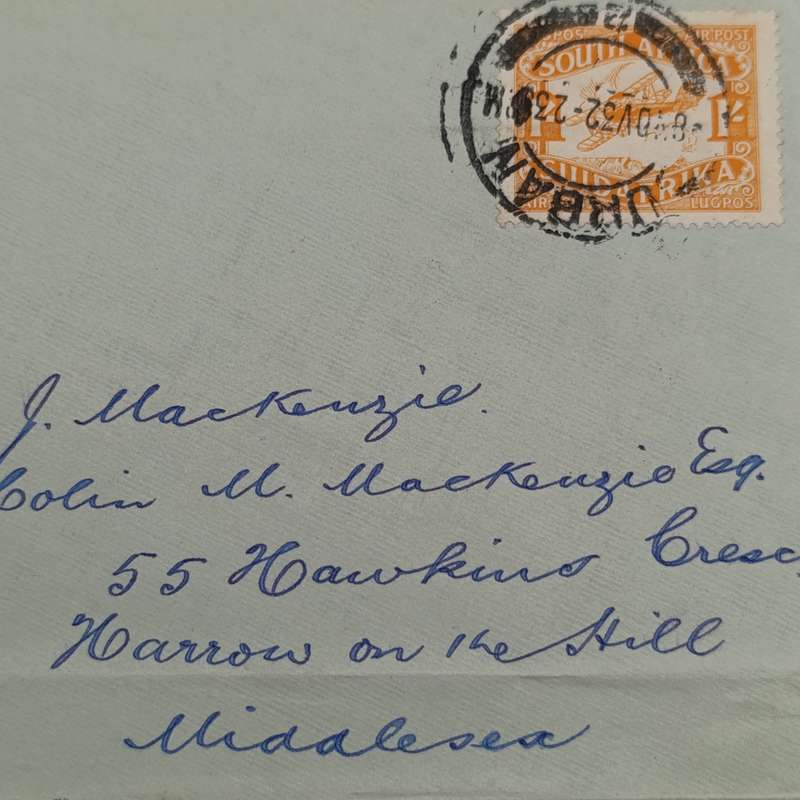 POS AIR POST
SOUTH AFRICA
1/-
SUIDAFRIKA
AIR LUGPOS
URBAN
NOV 32
J. Mackenzie.
Colin M. Mackenzie Esq.
55 Hawkins Cresc
Harrow on the Hill
Middlesex